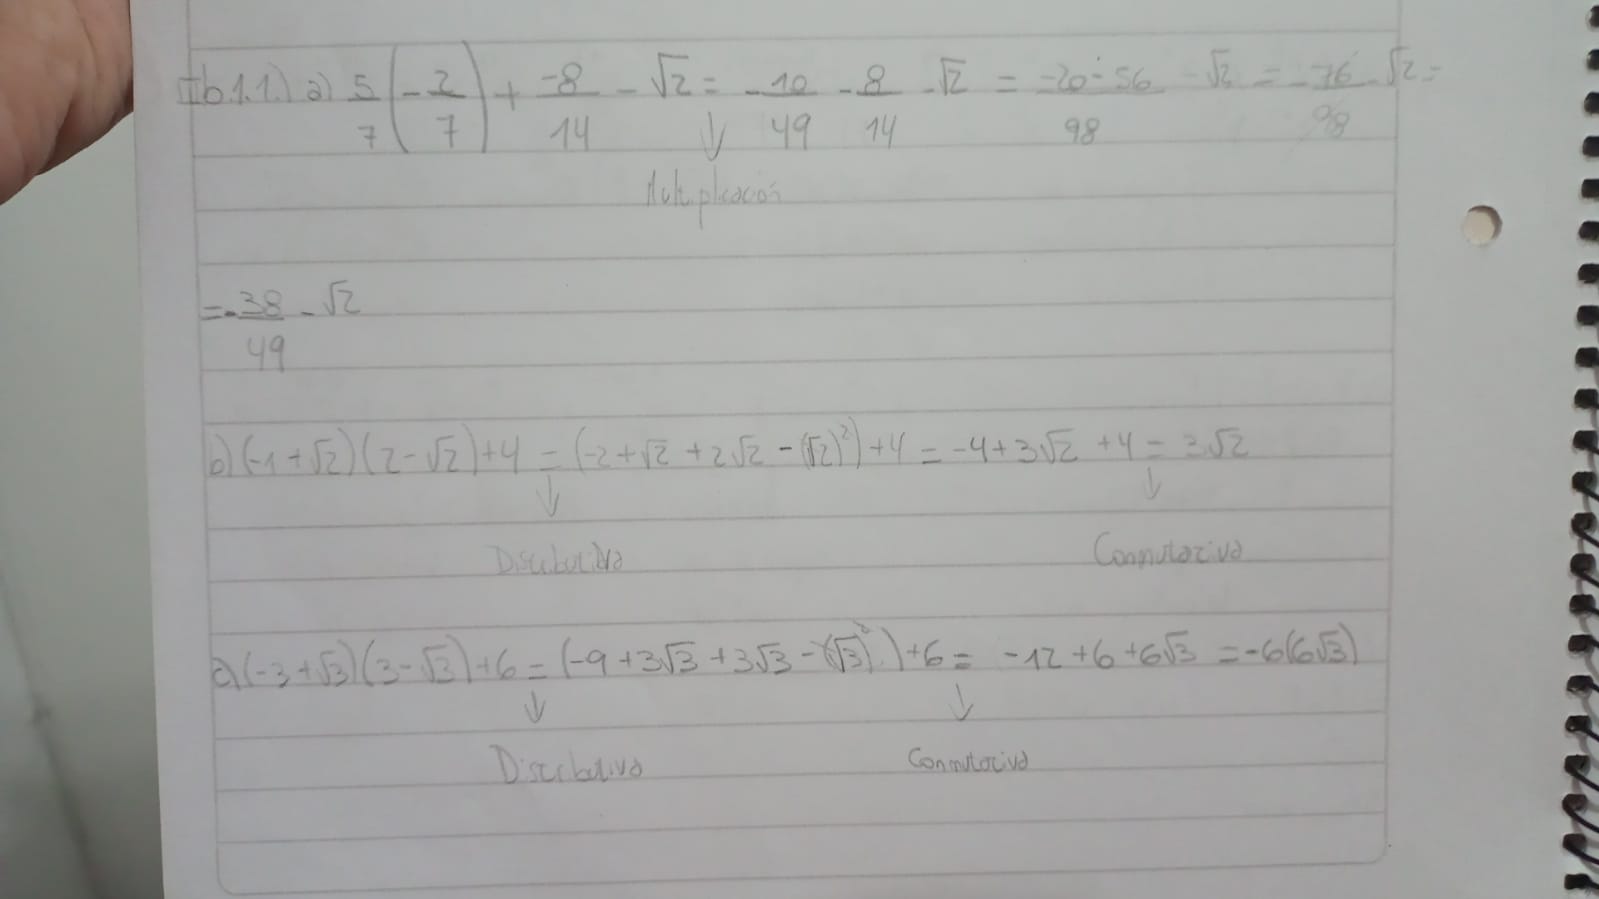 IIb1.1.) a) 5/7 (-2/7) + -8/14 - √2 = -10/49 - 8/14 - √2 = -20-56/98 - √2 = -76/98 - √2 =
Multiplicación
= -38/49 - √2
b) (-1+√2)(2-√2)+4 = (-2+√2+2√2-(√2)²)+4 = -4+3√2+4 = 3√2
Distributiva Conmutativa
(-3+√3)(3-√3)+6 = (-9+3√3+3√3-(√3)²)+6 = -12+6+6√3 = -6(6√3)
Distributiva Conmutativa